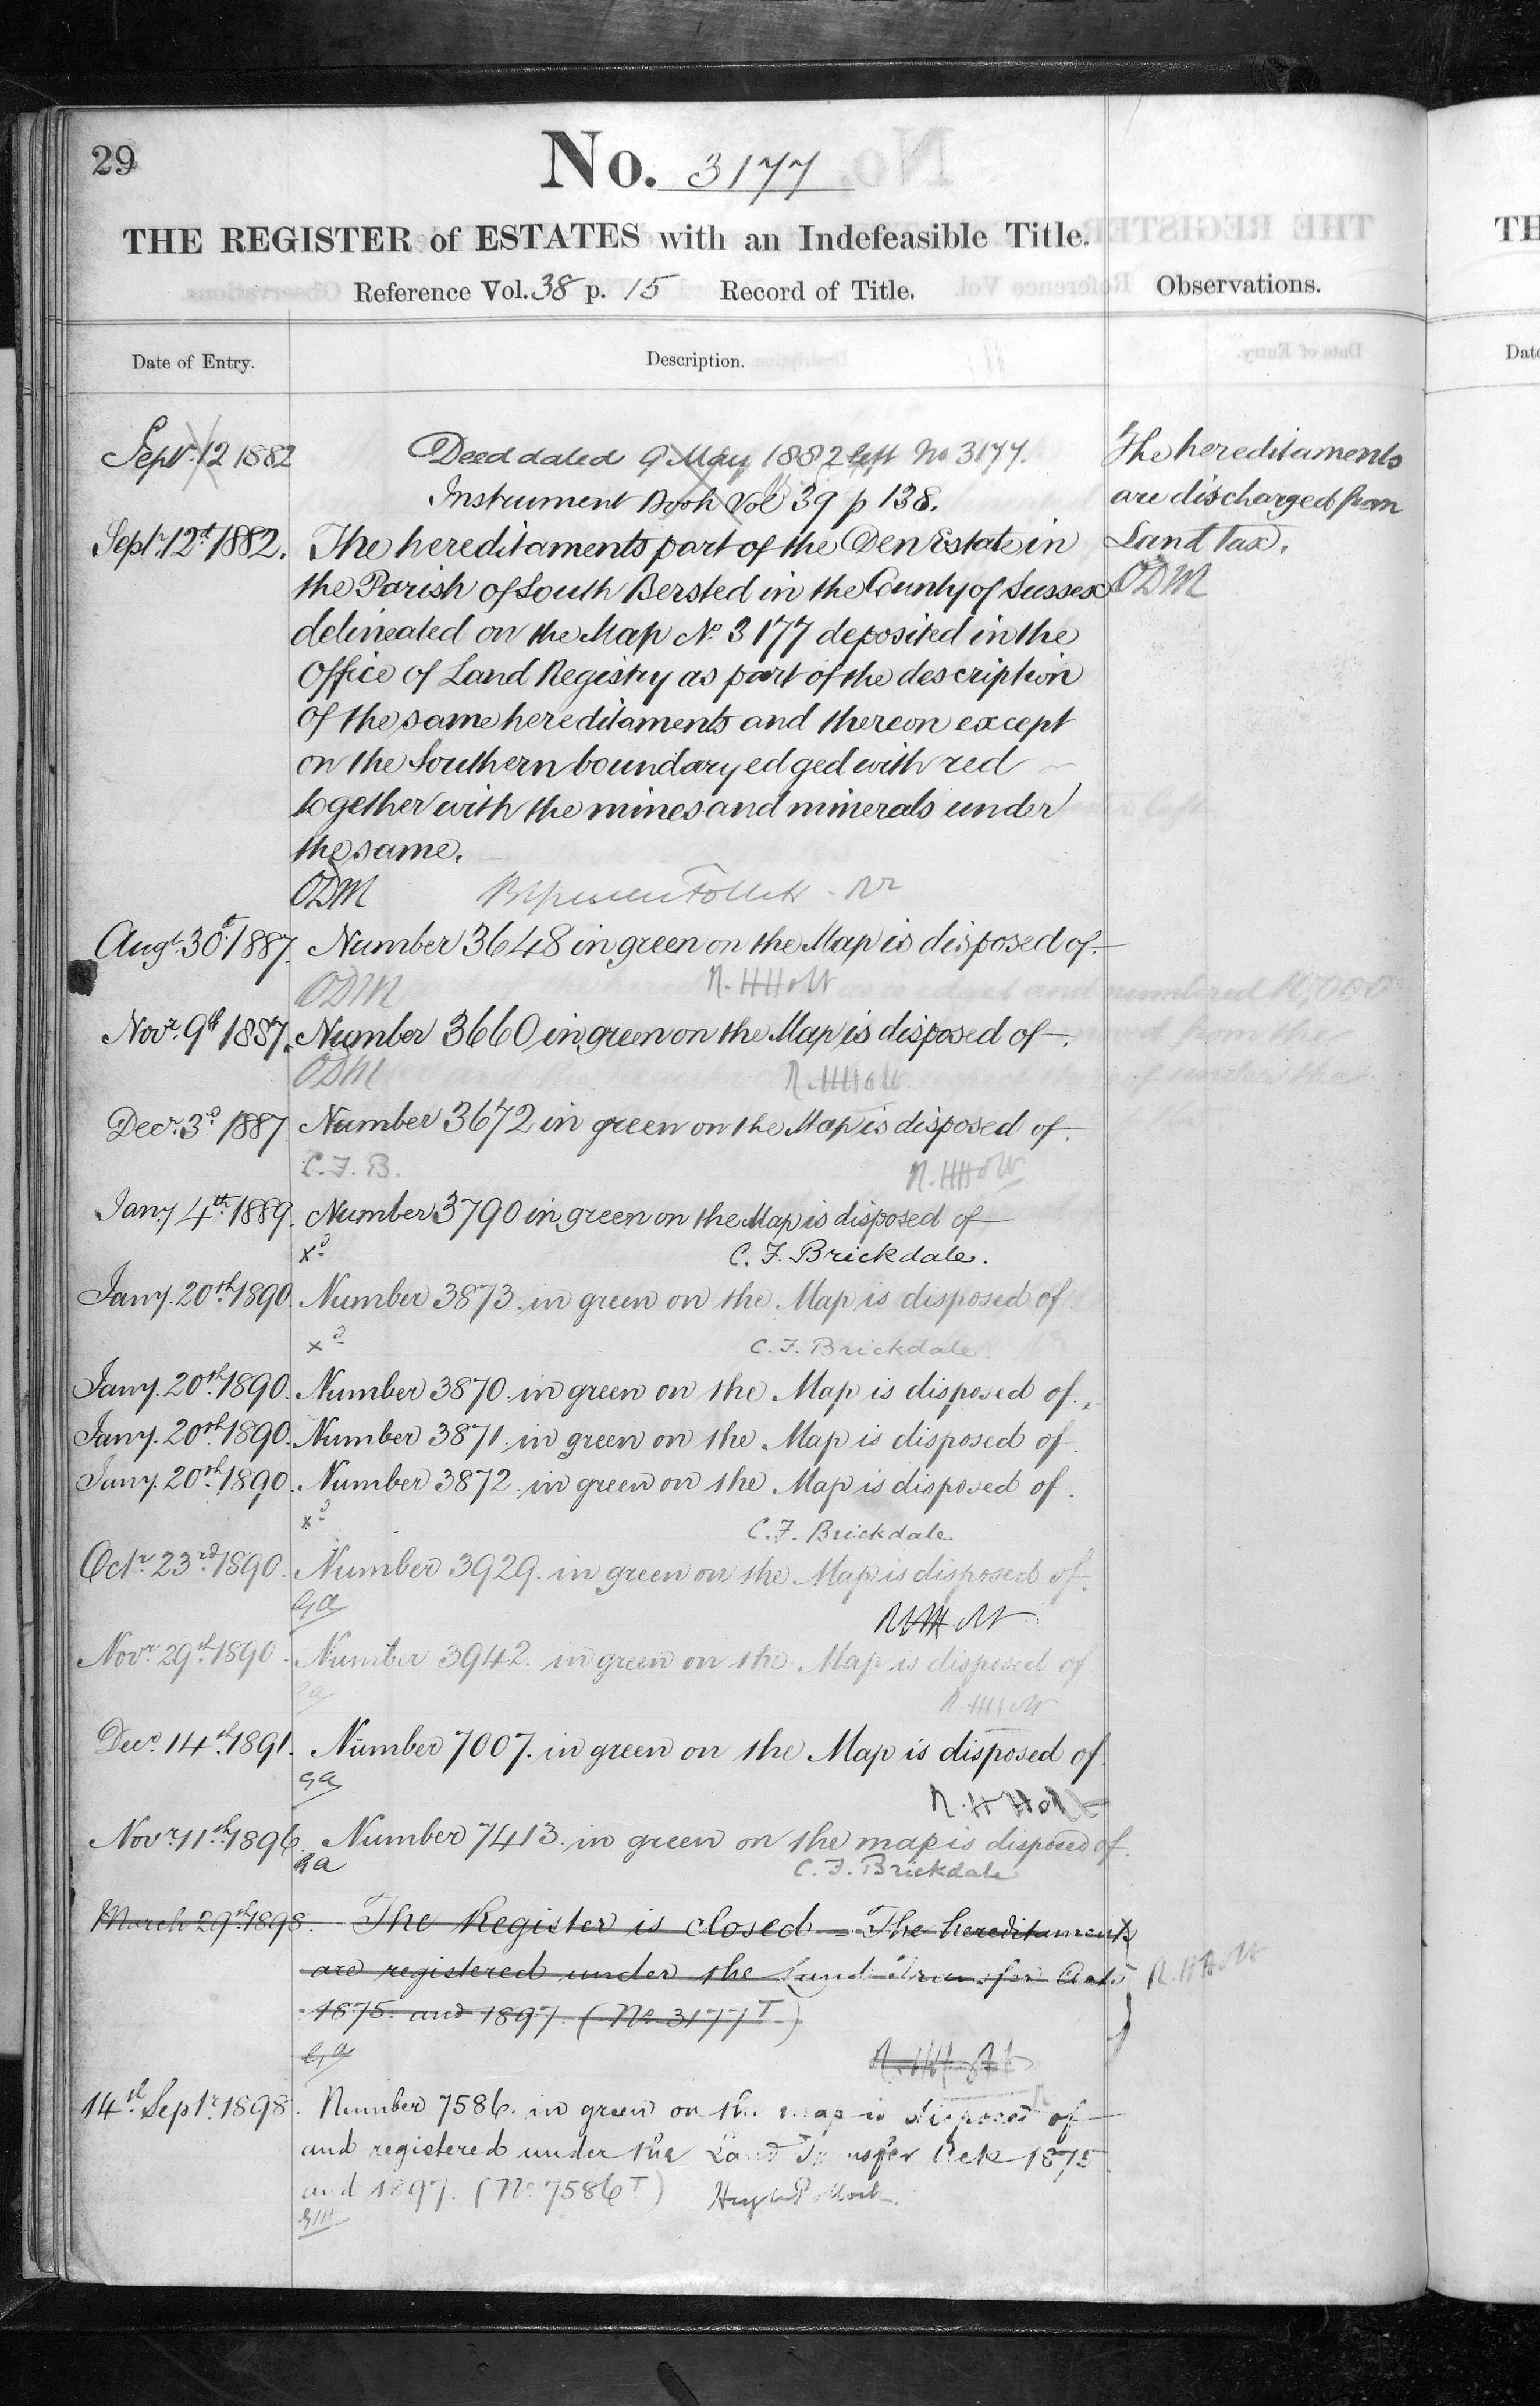 29
No. 3177
THE REGISTER of ESTATES with an Indefeasible Title.
Reference Vol. 38 p. 15 Record of Title.
Observations.
Date of Entry.
Description.
Sept. 12 1882 Deed dated 9 May 1882 left No 3177.
Instrument Book Vol 39 p 138.
The hereditaments
are discharged from
Land Tax.
ODM
Septr. 12th 1882. The hereditaments part of the Den Estate in
the Parish of South Bersted in the County of Sussex
delineated on the Map No 3177 deposited in the
Office of Land Registry as part of the description
of the same hereditaments and thereon except
on the Southern boundary edged with red
together with the mines and minerals under
the same.
ODM Follett
Augt. 30th 1887. Number 3648 in green on the Map is disposed of.
ODM R. H Holt
Novr. 9th 1887. Number 3660 in green on the Map is disposed of.
ODM R. H Holt
Decr. 3d 1887 Number 3672 in green on the Map is disposed of.
C. F. B. R. H Holt
Jany 4th 1889. Number 3790 in green on the Map is disposed of
C. F. Brickdale.
Jany. 20th 1890. Number 3873. in green on the Map is disposed of
C. F. Brickdale.
Jany. 20th 1890. Number 3870. in green on the Map is disposed of.
Jany. 20th 1890. Number 3871. in green on the Map is disposed of.
Jany. 20th 1890. Number 3872. in green on the Map is disposed of.
C. F. Brickdale
Octr. 23rd 1890. Number 3929. in green on the Map is disposed of.
Ga
R H Holt
Novr. 29th 1890. Number 3942. in green on the Map is disposed of
Ga
R. H Holt
Decr. 14th 1891. Number 7007. in green on the Map is disposed of.
Ga
R. H Holt
Novr. 11th 1896. Number 7413. in green on the map is disposed of.
Ga C. F. Brickdale
March 29th 1898. The Register is closed - The hereditaments
are registered under the Land Transfer Acts
1875 and 1897. (No. 3177T)
R. H Holt
Ga R. H Holt
14th Septr. 1898. Number 7586. in green on the map is disposed of
and registered under the Land Transfer Acts 1875
and 1897. (No 7586T) Hugh Pollock.